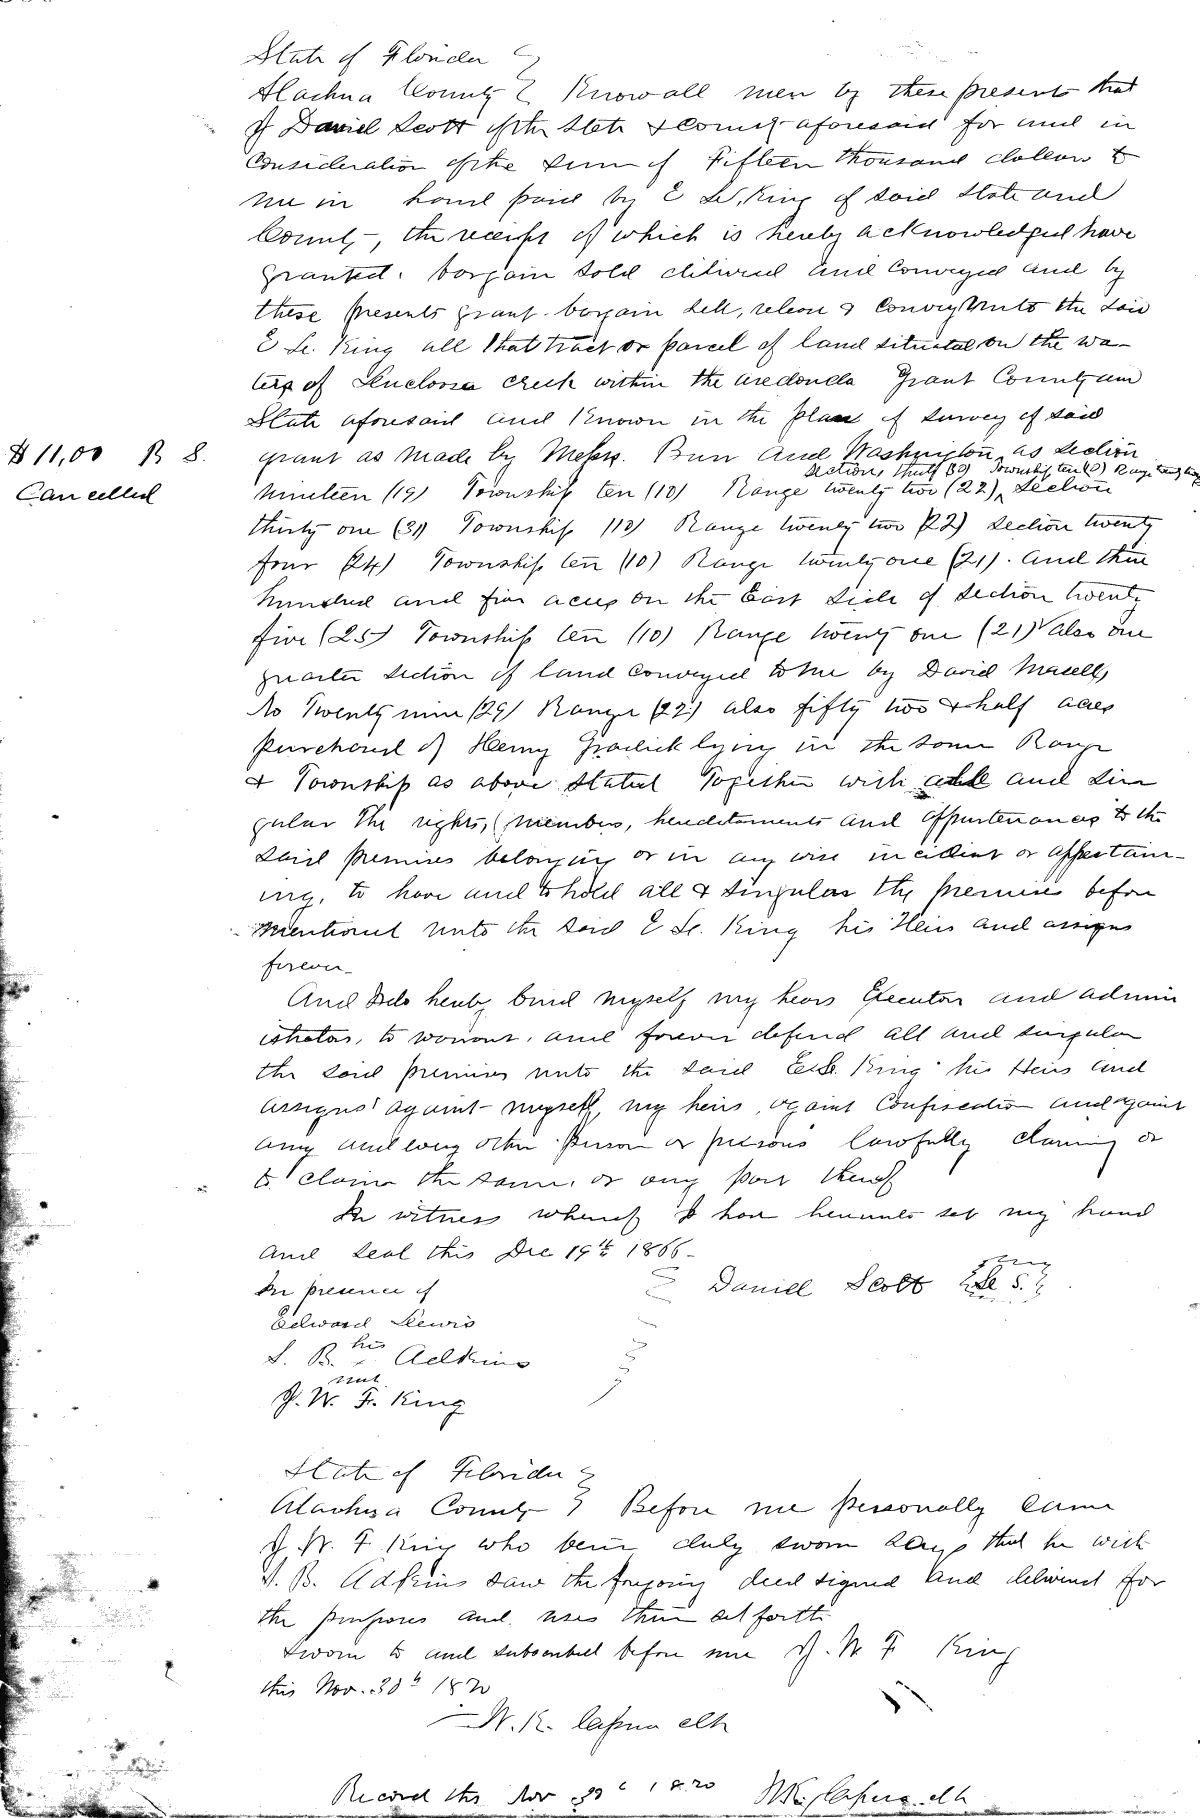 State of Florida
Alachua County } Know all men by these presents that
I Daniel Scott of the State & County aforesaid for and in
Consideration of the sum of Fifteen thousand dollars to
me in hand paid by E L. King of said State and
County, the receipt of which is hereby acknowledged have
granted, bargain sold delivered and conveyed and by
these presents grant bargain sell, release & convey unto the said
E L. King all that tract or parcel of land situated on the wa-
ters of creek within the aredonda Grant County and
State aforesaid and Known in the plan of survey of said
$11,00 R S. grant as made by Messrs. Burr and Washington, as section
Section thirty (30) Township ten (10) Range twenty two
Cancelled nineteen (19) Township ten (10) Range twenty two (22), Section
thirty one (31) Township (10) Range twenty two (22) section twenty
four (24) Township ten (10) Range twenty one (21). and three
hundred and five acres on the East side of Section twenty
five (25) Township ten (10) Range twenty one (21) also one
quarter section of land conveyed to me by David
No Twenty nine (29) Range (22) also fifty two & half acres
purchased of Henry lying in the same Range
& Township as above stated Together with all and sin
gular the rights, members, hereditaments and appurtenances to the
said premises belonging or in any wise incident or appertain-
ing, to have and to hold all & singular the premises before
mentioned unto the said E L. King his Heirs and assigns
forever
And I do hereby bind myself my heirs Executors and admin
istrators, to warrant, and forever defend all and singular
the said premises unto the said E L. King his Heirs and
assigns against myself, my heirs, against Confiscation and against
any and every other person or persons lawfully claiming or
to claim the same, or any part thereof
In witness whereof I have hereunto set my hand
and seal this Dec 19th 1866-
In presence of } Daniel Scott {L S.}
Edward Lewis
S. B. his x Adkins
J. W. F. King
State of Florida }
Alachua County } Before me personally came
J. W. F King who being duly sworn says that he with
S. B. Adkins saw the foregoing deed signed and delivered for
the purposes and uses therein set forth
Sworn to and subscribed before me J. W F King
this Nov. 30th 1870
W. K. Cessna clk
Record this Nov 30th 1870 W K. Cessna clk